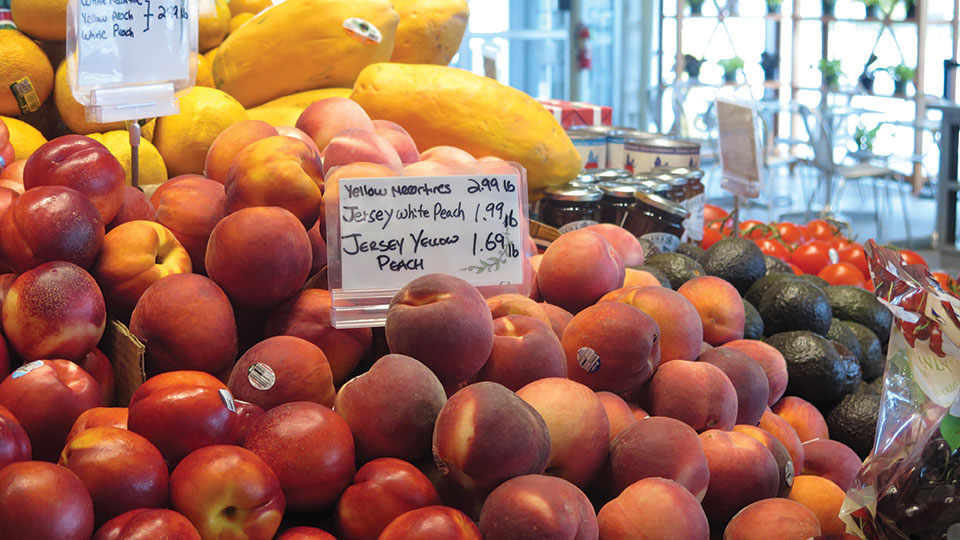 Yellow Peach } 2.99 lb
White Peach
Yellow Nectarines 2.99 lb
Jersey White Peach 1.99 lb
Jersey Yellow 1.69 lb
Peach